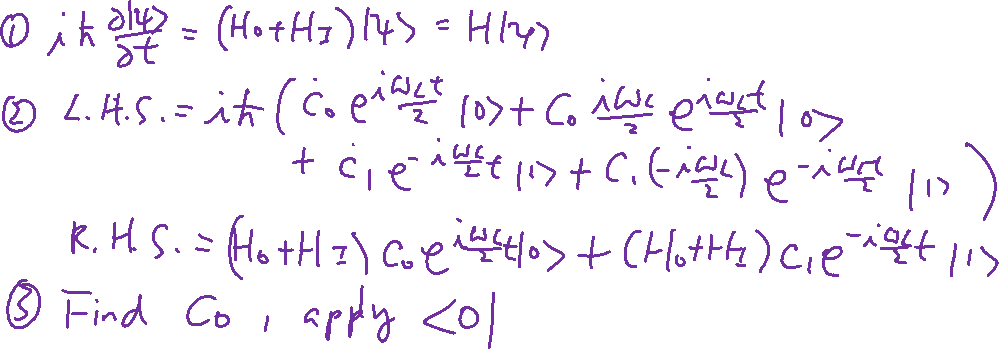 ① iħ ∂|ψ>/∂t = (H₀+H_I)|ψ> = H|ψ>
② L.H.S. = iħ ( ċ₀ e^{i ω_L t/2} |0> + C₀ iω_L/2 e^{i ω_L t/2} |0>
+ ċ₁ e^{-i ω_L/2 t} |1> + C₁ (-i ω_L/2) e^{-i ω_L t/2} |1> )
R.H.S. = (H₀+H_I) C₀ e^{i ω_L/2 t} |0> + (H₀+H_I) C₁ e^{-i ω_L/2 t} |1>
③ Find C₀, apply <0|